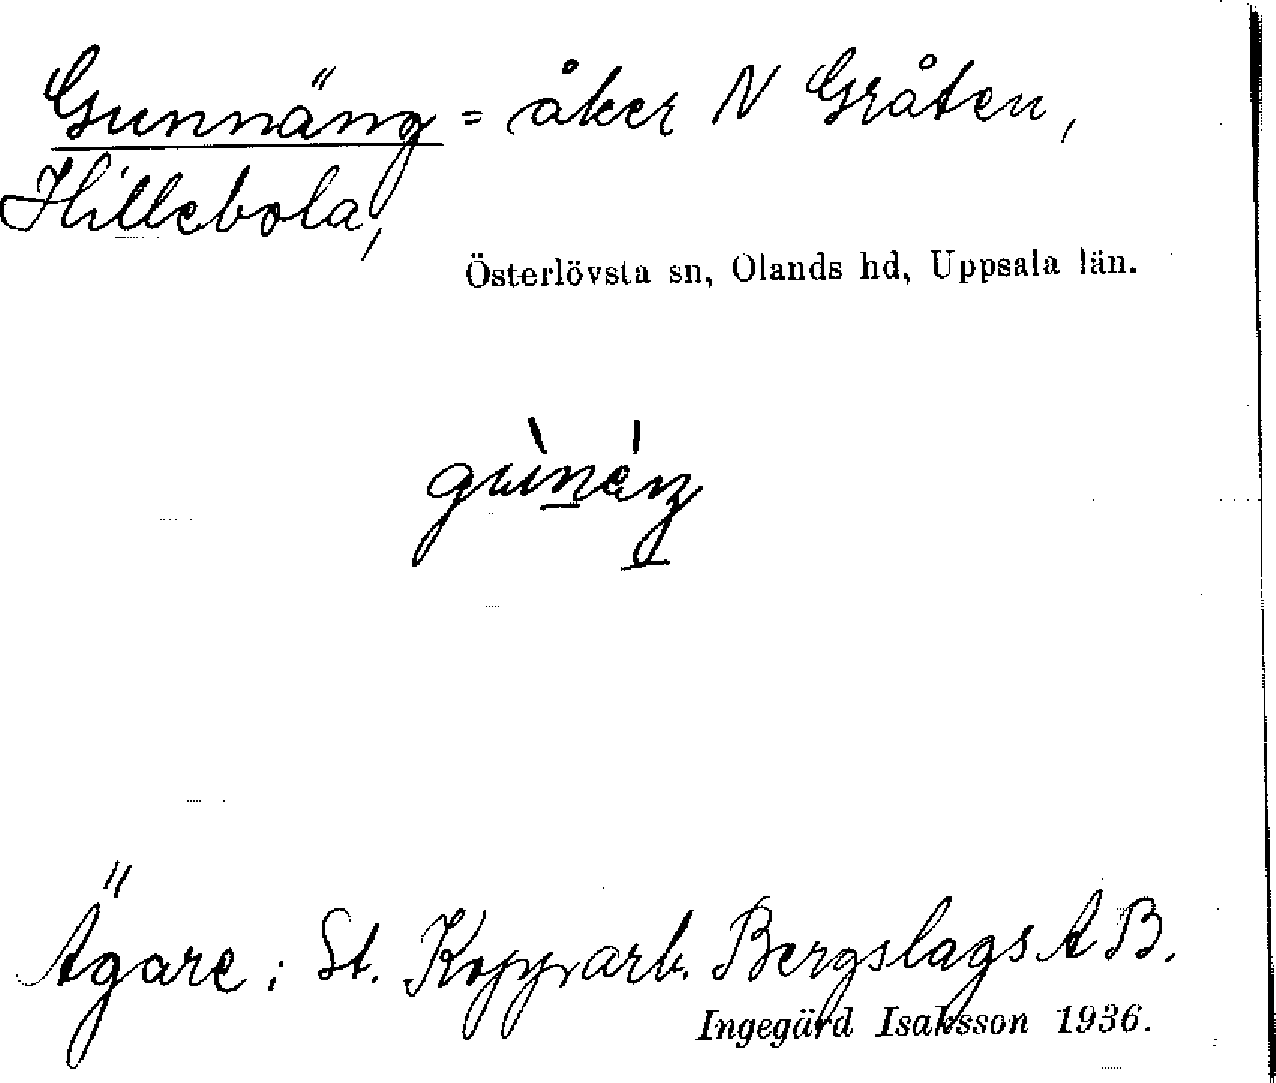 Gunnäng = åker N Gråten,
Hillebola,
Österlövsta sn, Olands hd, Uppsala län.
Ägare: St. Kopparb. Bergslags AB.
Ingegärd Isaksson 1936.